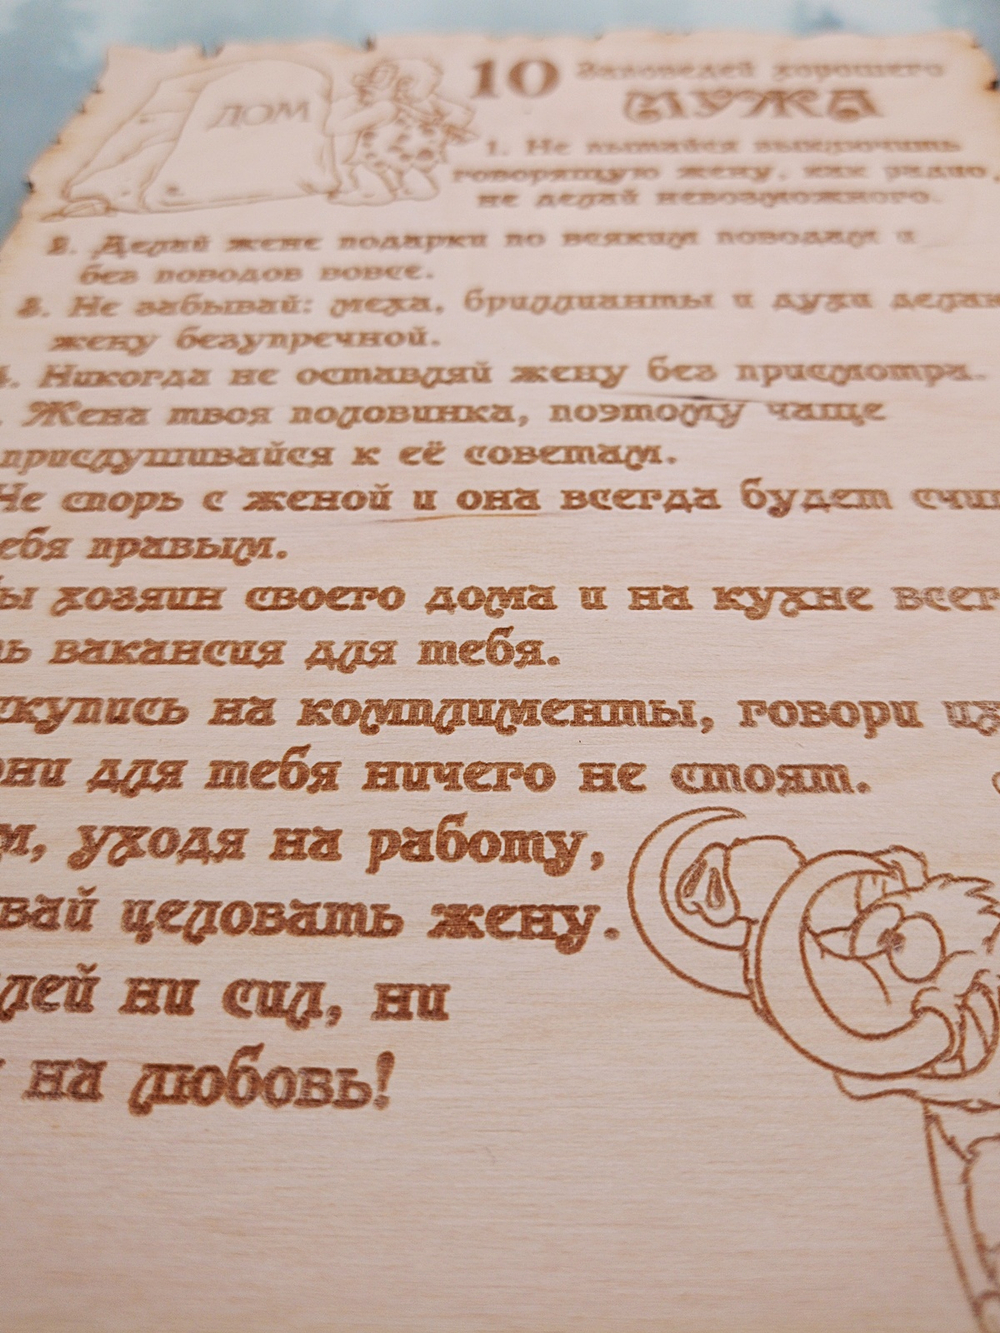 ДОМ
10 Заповедей хорошего
МУЖА
1. Не пытайся выключить
говорящую жену, как радио,
не делай невозможного.
2. Делай жене подарки по всяким поводам и
без поводов вовсе.
3. Не забывай: меха, бриллианты и духи делаю
жену безупречной.
4. Никогда не оставляй жену без присмотра.
. Жена твоя половинка, поэтому чаще
прислушивайся к её советам.
Не спорь с женой и она всегда будет счи
ебя правым.
ы хозяин своего дома и на кухне всег
ь вакансия для тебя.
скупись на комплименты, говори их
они для тебя ничего не стоят.
м, уходя на работу,
вай целовать жену.
лей ни сил, ни
на любовь!